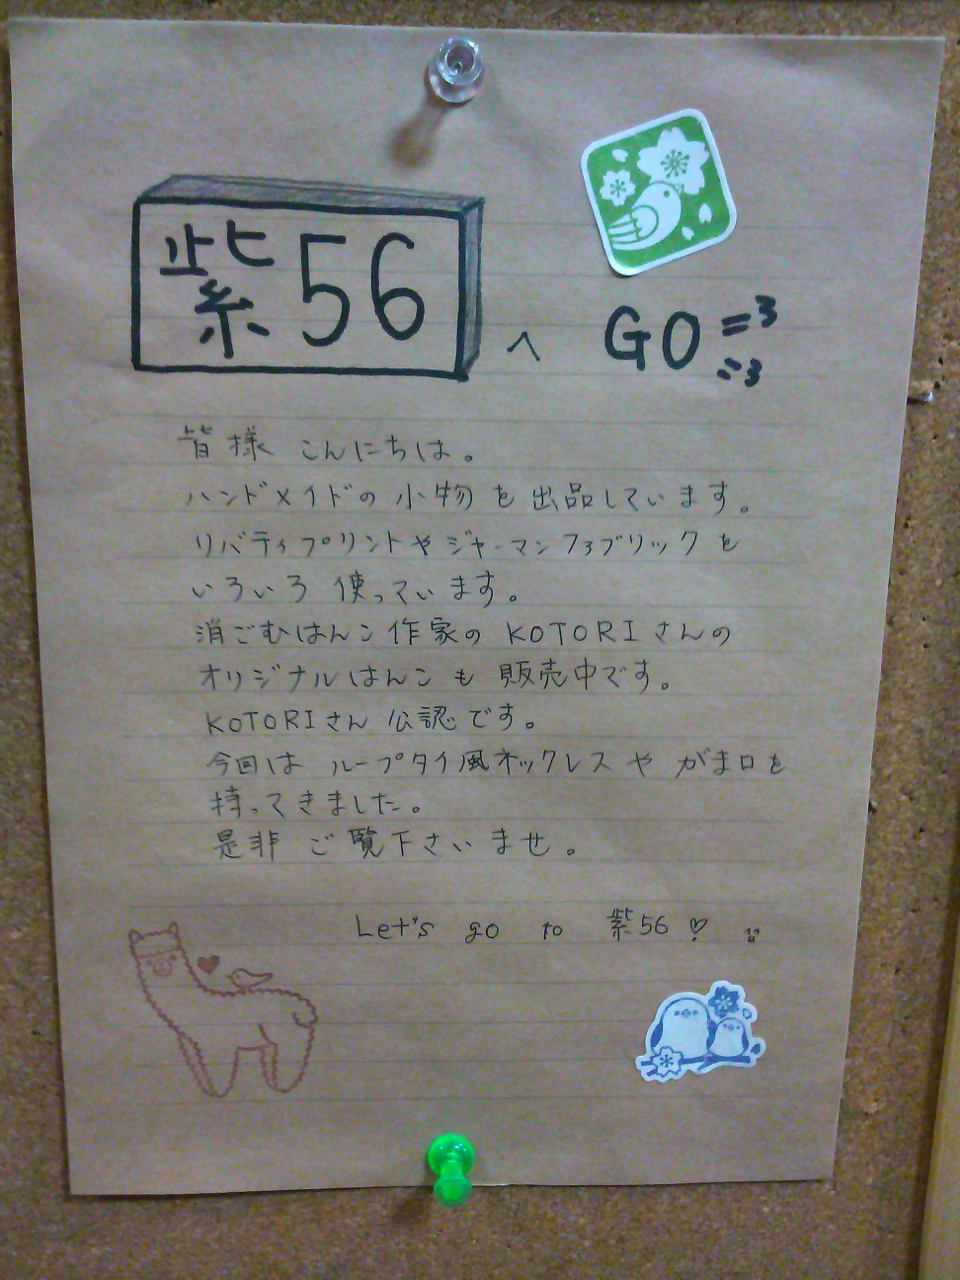 紫56 へ GO
皆様 こんにちは。
ハンドメイドの 小物 を 出品しています。
リバティプリントや ジャーマンファブリック を
いろいろ 使っています。
消ごむはんこ 作家の KOTORI さんの
オリジナル はんこ も 販売中です。
KOTORI さん 公認です。
今回は ループタイ風ネックレス や がま口を
持ってきました。
是非 ご覧下さいませ。
Let's go to 紫56 ♡